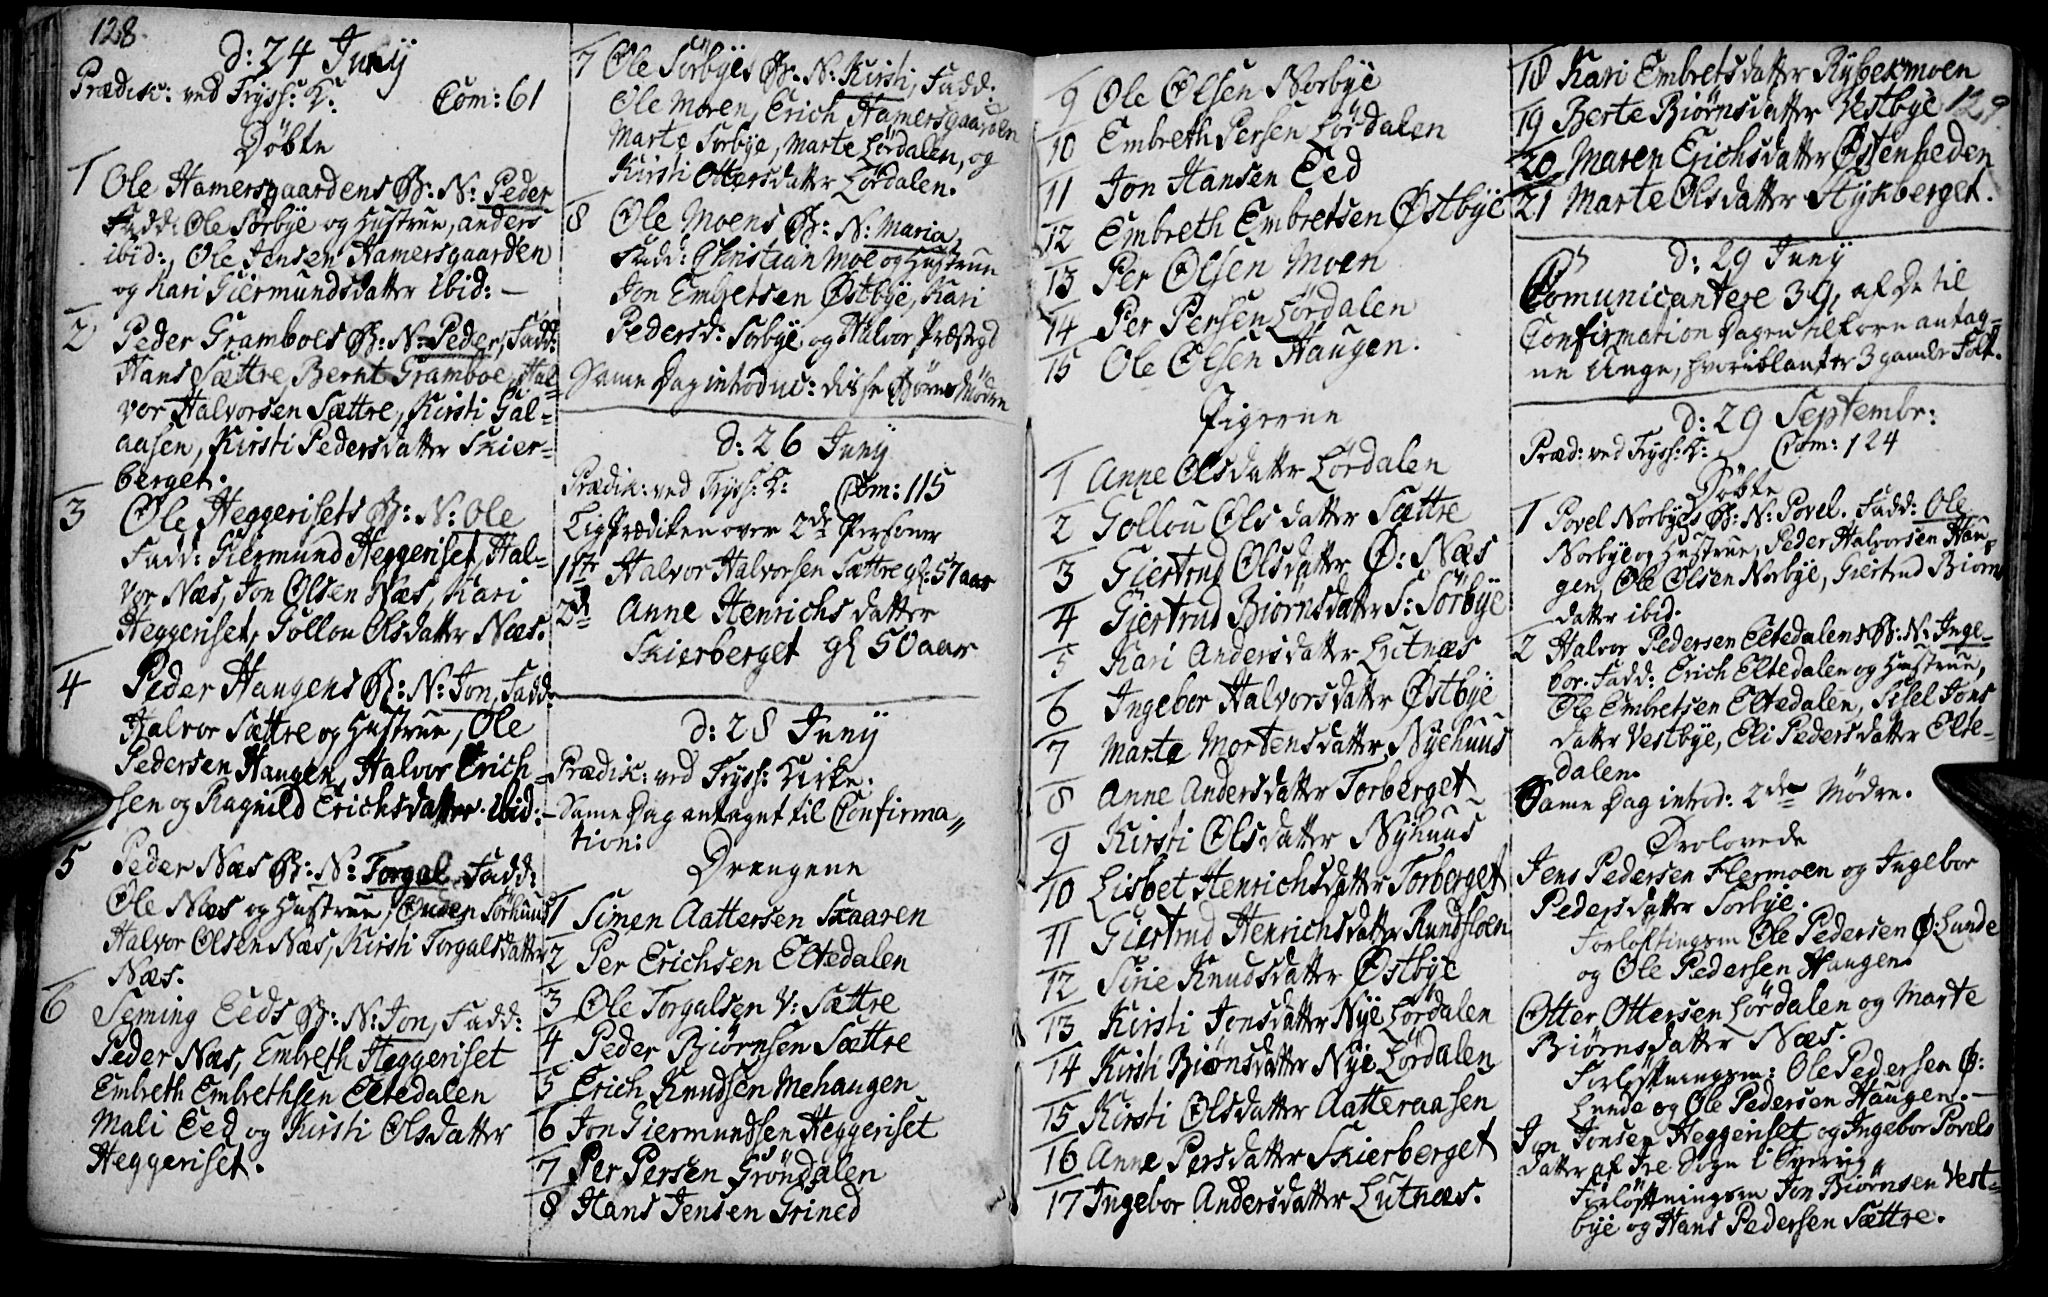 128.
d: 24 Junÿ
Prædik: ved Tryss: K: Com: 61
Døbte
1 Ole Hamersgaardens B: N: Peder
Fadd: Ole Sorbÿe og Hustrue, anders
ibid:, Ole Jensen Hamersgaarden
og Kari Giermundsdatter ibid: —
2 Peder Gramboes B: N: Peder, Fadd:
Hans Sættre, Bernt Gramboe, Hal-
vor Halvorsen Sættre, Kirsti Gal-
aasen, Kirsti Pedersdatter Skier-
berget.
3 Ole Heggerisets B: N: Ole
Fadd: Giermund Heggeriset, Hal-
vor Næs, Jon Olsen Næs, Kari
Heggeriset, Gollou Olsdatter Næs.
4 Peder Haugens B: N: Jon, Fadd:
Halvor Sættre og Hustrue, Ole
Pedersen Haugen, Halvor Erich-
sen og Ragnild Erichsdatter ibid: —
5 Peder Næs B: N: Torgal Fadd:
Ole Næs og Hustrue, Sörhuus
Halvor Olsen Næs, Kirsti Torgalsdatter
Næs.
6 Seming Eeds B: N: Jon, Fadd:
Peder Næs, Embreth Heggeriset
Embreth Embrethsen Eltedalen
Mali Eed og Kirsti Olsdatter
Heggeriset.
7 Ole Sörbÿes B: N: Kirsti, Fadd:
Ole Moren, Erich Hamersgaarden
Marte Sorbÿe, Marte Lördalen, og
Kirsti Ottersdatter Lördalen.
8 Ole Moens B: N: Maria,
Fadd: Christian Moe og Hustrue
Jon Embretsen Østbÿe, Kari
Pedersd: Sorbÿe og Halvor Præstgd
Same Dag introduc: disse Børns Mödre
d: 26 Junÿ
Prædik: ved Tryss: K: Com: 115
Ligprædiken over 2de Personer
1ste Halvor Halvorsen Sættre gl: 57 aar
2d Anne Henrichsdatter
Skierberget gl 50 aar
d: 28 Junÿ
Prædik: ved Tryss: Kirke:
Same Dag antaget til Confirma-
tion:
Drengene
1 Simen Aattersen Skaaren
2 Per Erichsen Eltedalen
3 Ole Torgalsen V: Sættre
4 Peder Biörnsen Sættre
5 Erich Knudsen Mehaugen
6 Jon Giermundsen Heggeriset
7 Per Persen Gröndalen
8 Hans Jensen Grined
9 Ole Olsen Norbÿe
10 Embreth Persen Lördalen
11 Jon Hansen Eed
12 Embreth Embretsen Østbÿe
13 Per Olsen Moen
14 Per Persen Lördalen
15 Ole Olsen Haugen.
Pigerne
1 Anne Olsdatter Lördalen
2 Gollou Olsdatter Sættre
3 Giertrud Olsdatter Ø: Næs
4 Giertrud Biörnsdatter S: Sörbÿe
5 Kari Andersdatter Lutnæs
6 Ingebor Halvorsdatter Østbÿe
7 Marte Mortensdatter Nÿehuus
8 Anne Andersdatter Torberget
9 Kirsti Olsdatter Nÿhuus
10 Lisbet Henrichsdatter Torberget
11 Giertrud Henrichsdatter Rundfloen
12 Sirie Knudsdatter Østbÿe
13 Kirsti Jonsdatter Nÿe Lördalen
14 Kirsti Biönsdatter Nÿe Lördalen
15 Kirsti Olsdatter Aatteraasen
16 Anne Persdatter Skierberget
17 Ingebor Andersdatter Lutnæs.
18 Kari Embretsdatter Rÿsbekmoen
129
19 Berte Biørnsdatter Vestbÿe
20 Maren Erichsdatter Østenheden
21 Marte Olsdatter Stÿkberget.
d: 29 Junÿ
Comunicantere 39, af De til
Confirmation Dagen tilforn antag-
ne Unge, hvoriblanter 3 gamle Folk.
d: 29 Septembr:
Præd: ved Tryss: K: Com: 124
Døbte
1 Povel Norbÿes B: N: Povel. Fadd: Ole
Norbÿe og Hustrue, Peder Halvorsen Hau-
gen, Ole Olsen Norbÿe, Giertrud Biorns
datter ibid.
2 Halvor Pedersen Eltedalens B: N: Inge-
bor. Fadd: Erich Eltedalen og Hustrue,
Ole Embretsen Eltedalen, Sisel Jons
datter Vestbÿe, Eli Pedersdatter Elte-
dalen.
Same Dag introd: 2de Mødre.
Trolovede
Jens Pedersen Flermoen og Ingebor
Pedersdatter Sorbÿe.
Forloftingsm Ole Pedersen Ø: Lunde
og Ole Pedersen Haugen.
Otter Ottersen Lördalen og Marte
Biörnsdatter Næs.
Forløftningsm: Ole Pedersen Ø:
Lunde og Ole Pedersen Haugen. —
Jon Jonsen Heggeriset og Ingebor Povels
datter af Ire Sogn i Sverrig
Forløftningsm Jon Biørnsen Vest-
bÿe og Hans Pedersen Sættre.